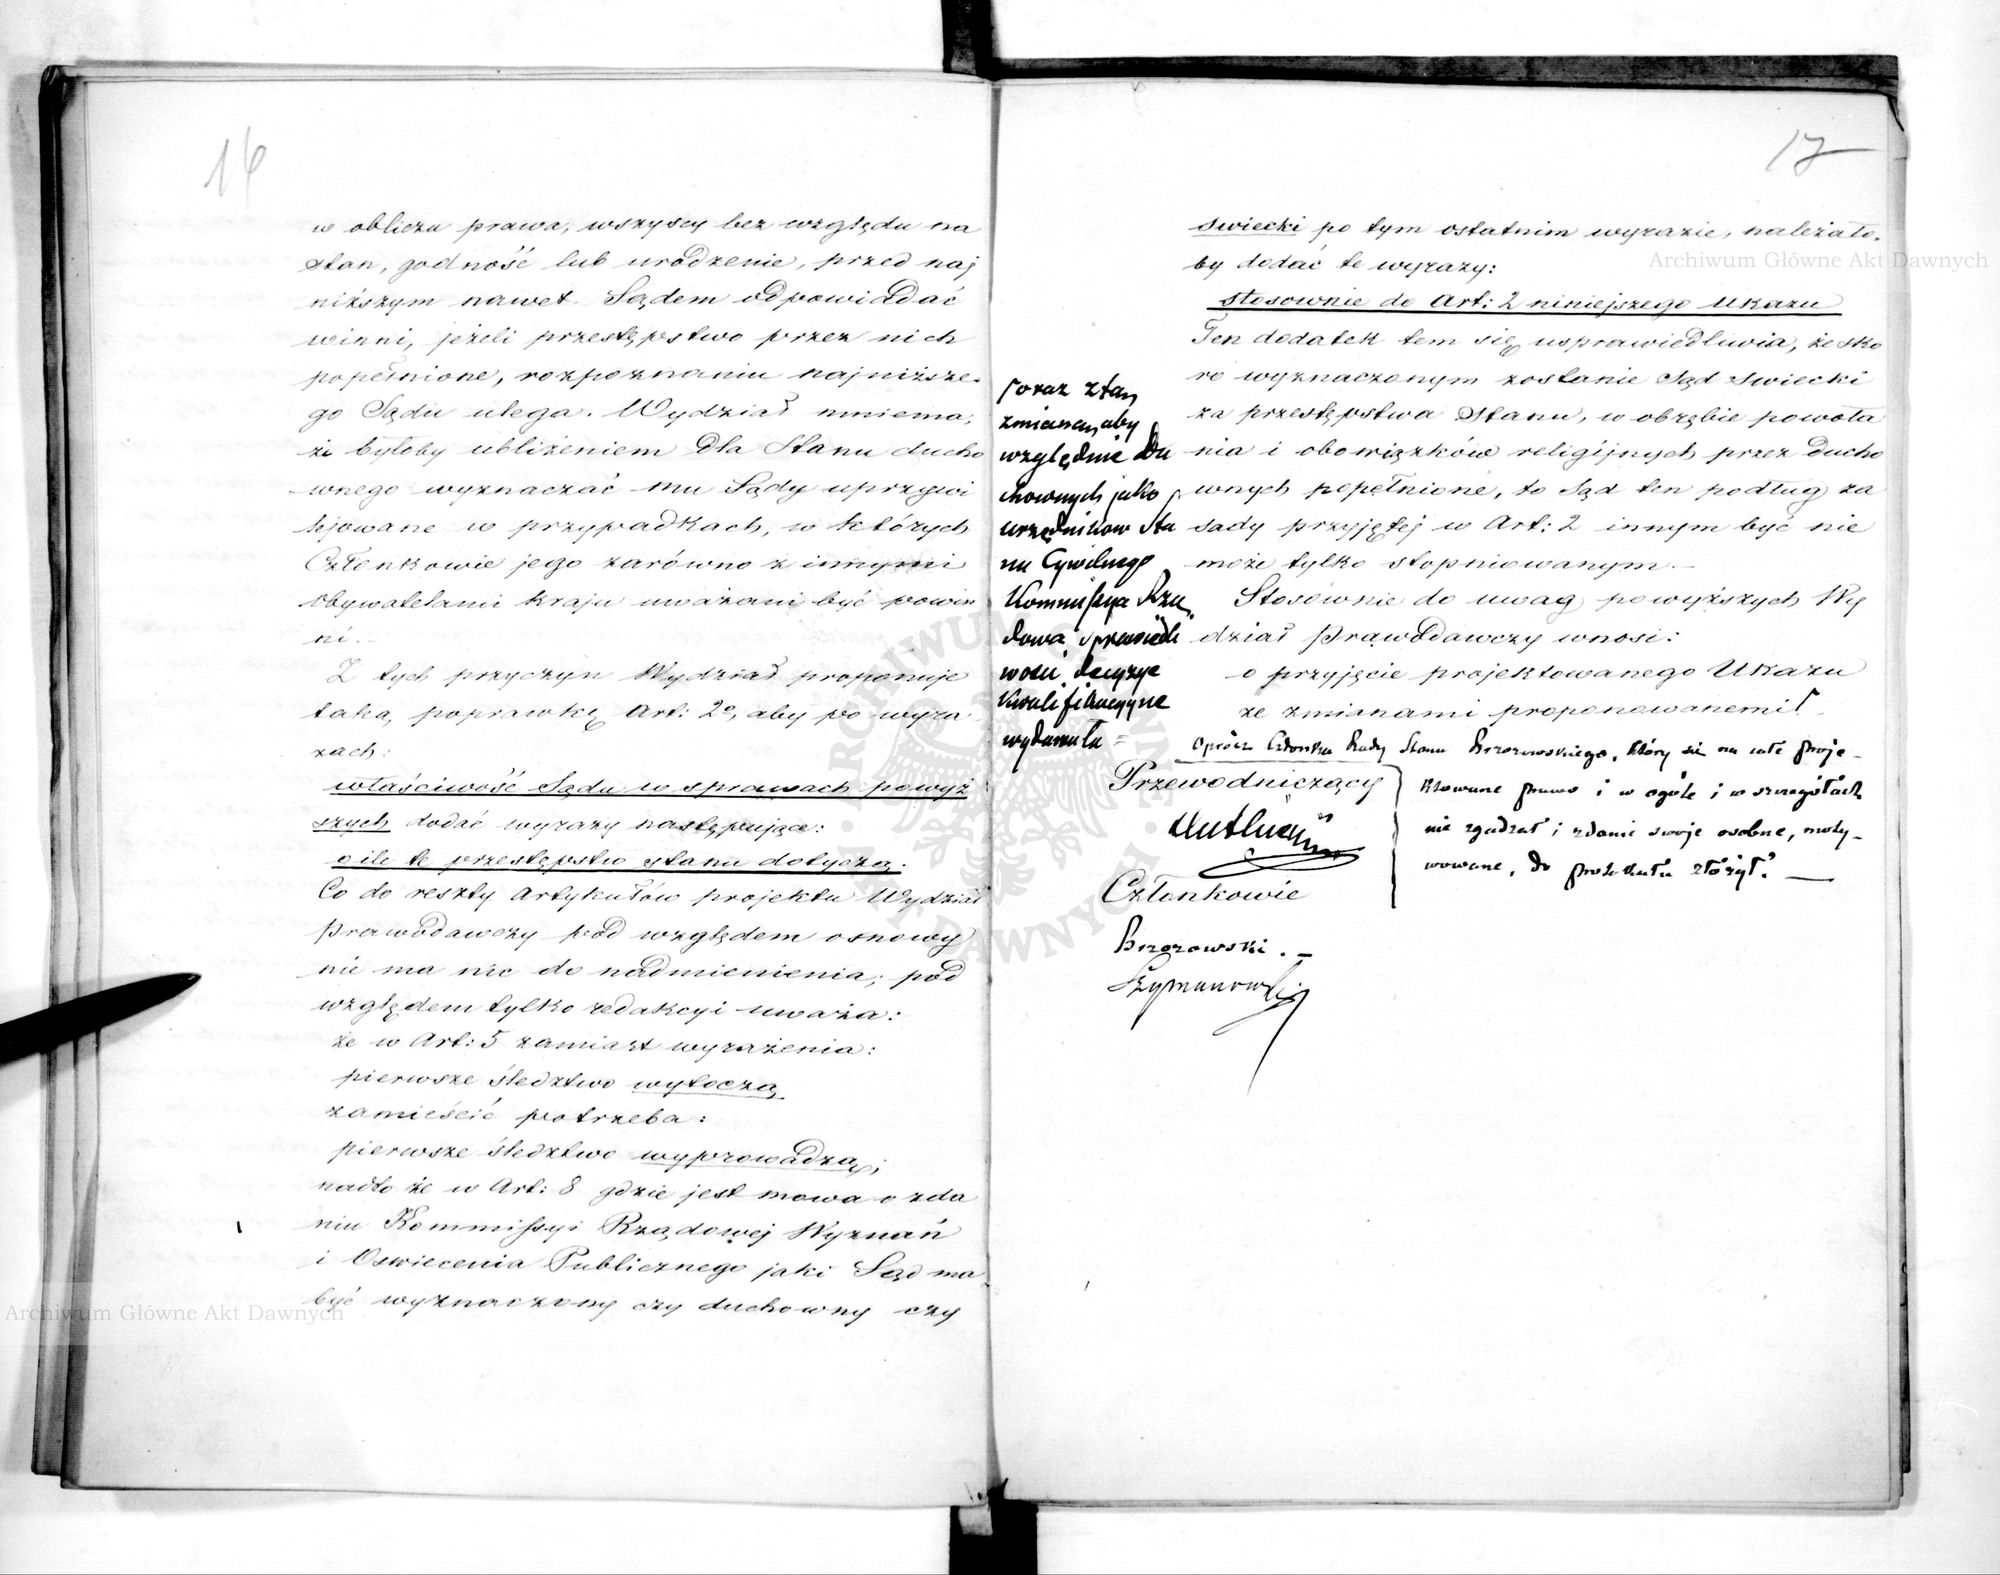 16
w obliczu prawa, wszyscy bez względu na
stan, godność lub urodzenie, przed naj
niższym nawet Sądem odpowiadać
winni, jeżeli przestępstwo przez nich
popełnione, rozpoznaniu najniższe-
go Sądu ulega. Wydział mniema,
że byłoby ubliżeniem dla Stanu ducho
wnego wyznaczać mu Sądy uprzywi
lejowane w przypadkach, w których
Członkowie jego zarówno z innymi
obywatelami kraju uważani być powin
ni.
Z tych przyczyn Wydział proponuje
taką poprawkę Art: 2o, aby po wyra
zach:
właściwość Sądu w sprawach powyż
szych dodać wyrazy następujące:
o ile te przestępstw stanu dotyczą.
Co do reszty Artykułów projektu Wydział
prawodawczy pod względem osnowy
nie ma nic do nadmienienia; pod
względem tylko redakcyi uważa:
że w Art: 5 zamiast wyrażenia:
pierwsze śledztwo wytoczą
zamieścić potrzeba:
pierwsze śledztwo wyprowadzą;
nadto że w Art: 8 gdzie jest mowa o zda
niu Kommissyi Rządowej Wyznań
i Oswiecenia Publicznego jaki Sąd ma
być wyznaczony czy duchowny czy
17
swiecki po tym ostatnim wyrazie, należało-
by dodać te wyrazy:
stosownie do Art: 2 niniejszego Ukazu
Ten dodatek tem się usprawiedliwia, że sko
ro wyznaczonym zostanie Sąd swiecki
za przestępstwa Stanu, w obrębie powoła
nia i obowiązków religijnych przez ducho
wnych popełnione, to Sąd ten podług za
sady przyjętej w Art: 2 innym być nie
może tylko stopniowanym.
Stosownie do uwag powyższych Wy
dział Prawodawczy wnosi:
o przyjęcie projektowanego Ukazu
ze zmianami proponowanemi
oraz z tą
zmianą, aby
względnie Du
chownych jako
urzędników Sta
nu Cywilnego
Kommissya Rzą
dowa sprawiedli
wości decyzye
kwalifikacyjne
wydawała =
oprócz Członka Rady Stanu Brzozowskiego, który się na całe proje-
ktowane prawo i w ogóle i w szczegółach
nie zgadzał i zdanie swoje osobne, moty-
wowane, do protokułu złożył.
Przewodniczący
Członkowie
Brzozowski.
Szymanowski
Archiwum Główne Akt Dawnych
Archiwum Główne Akt Dawnych